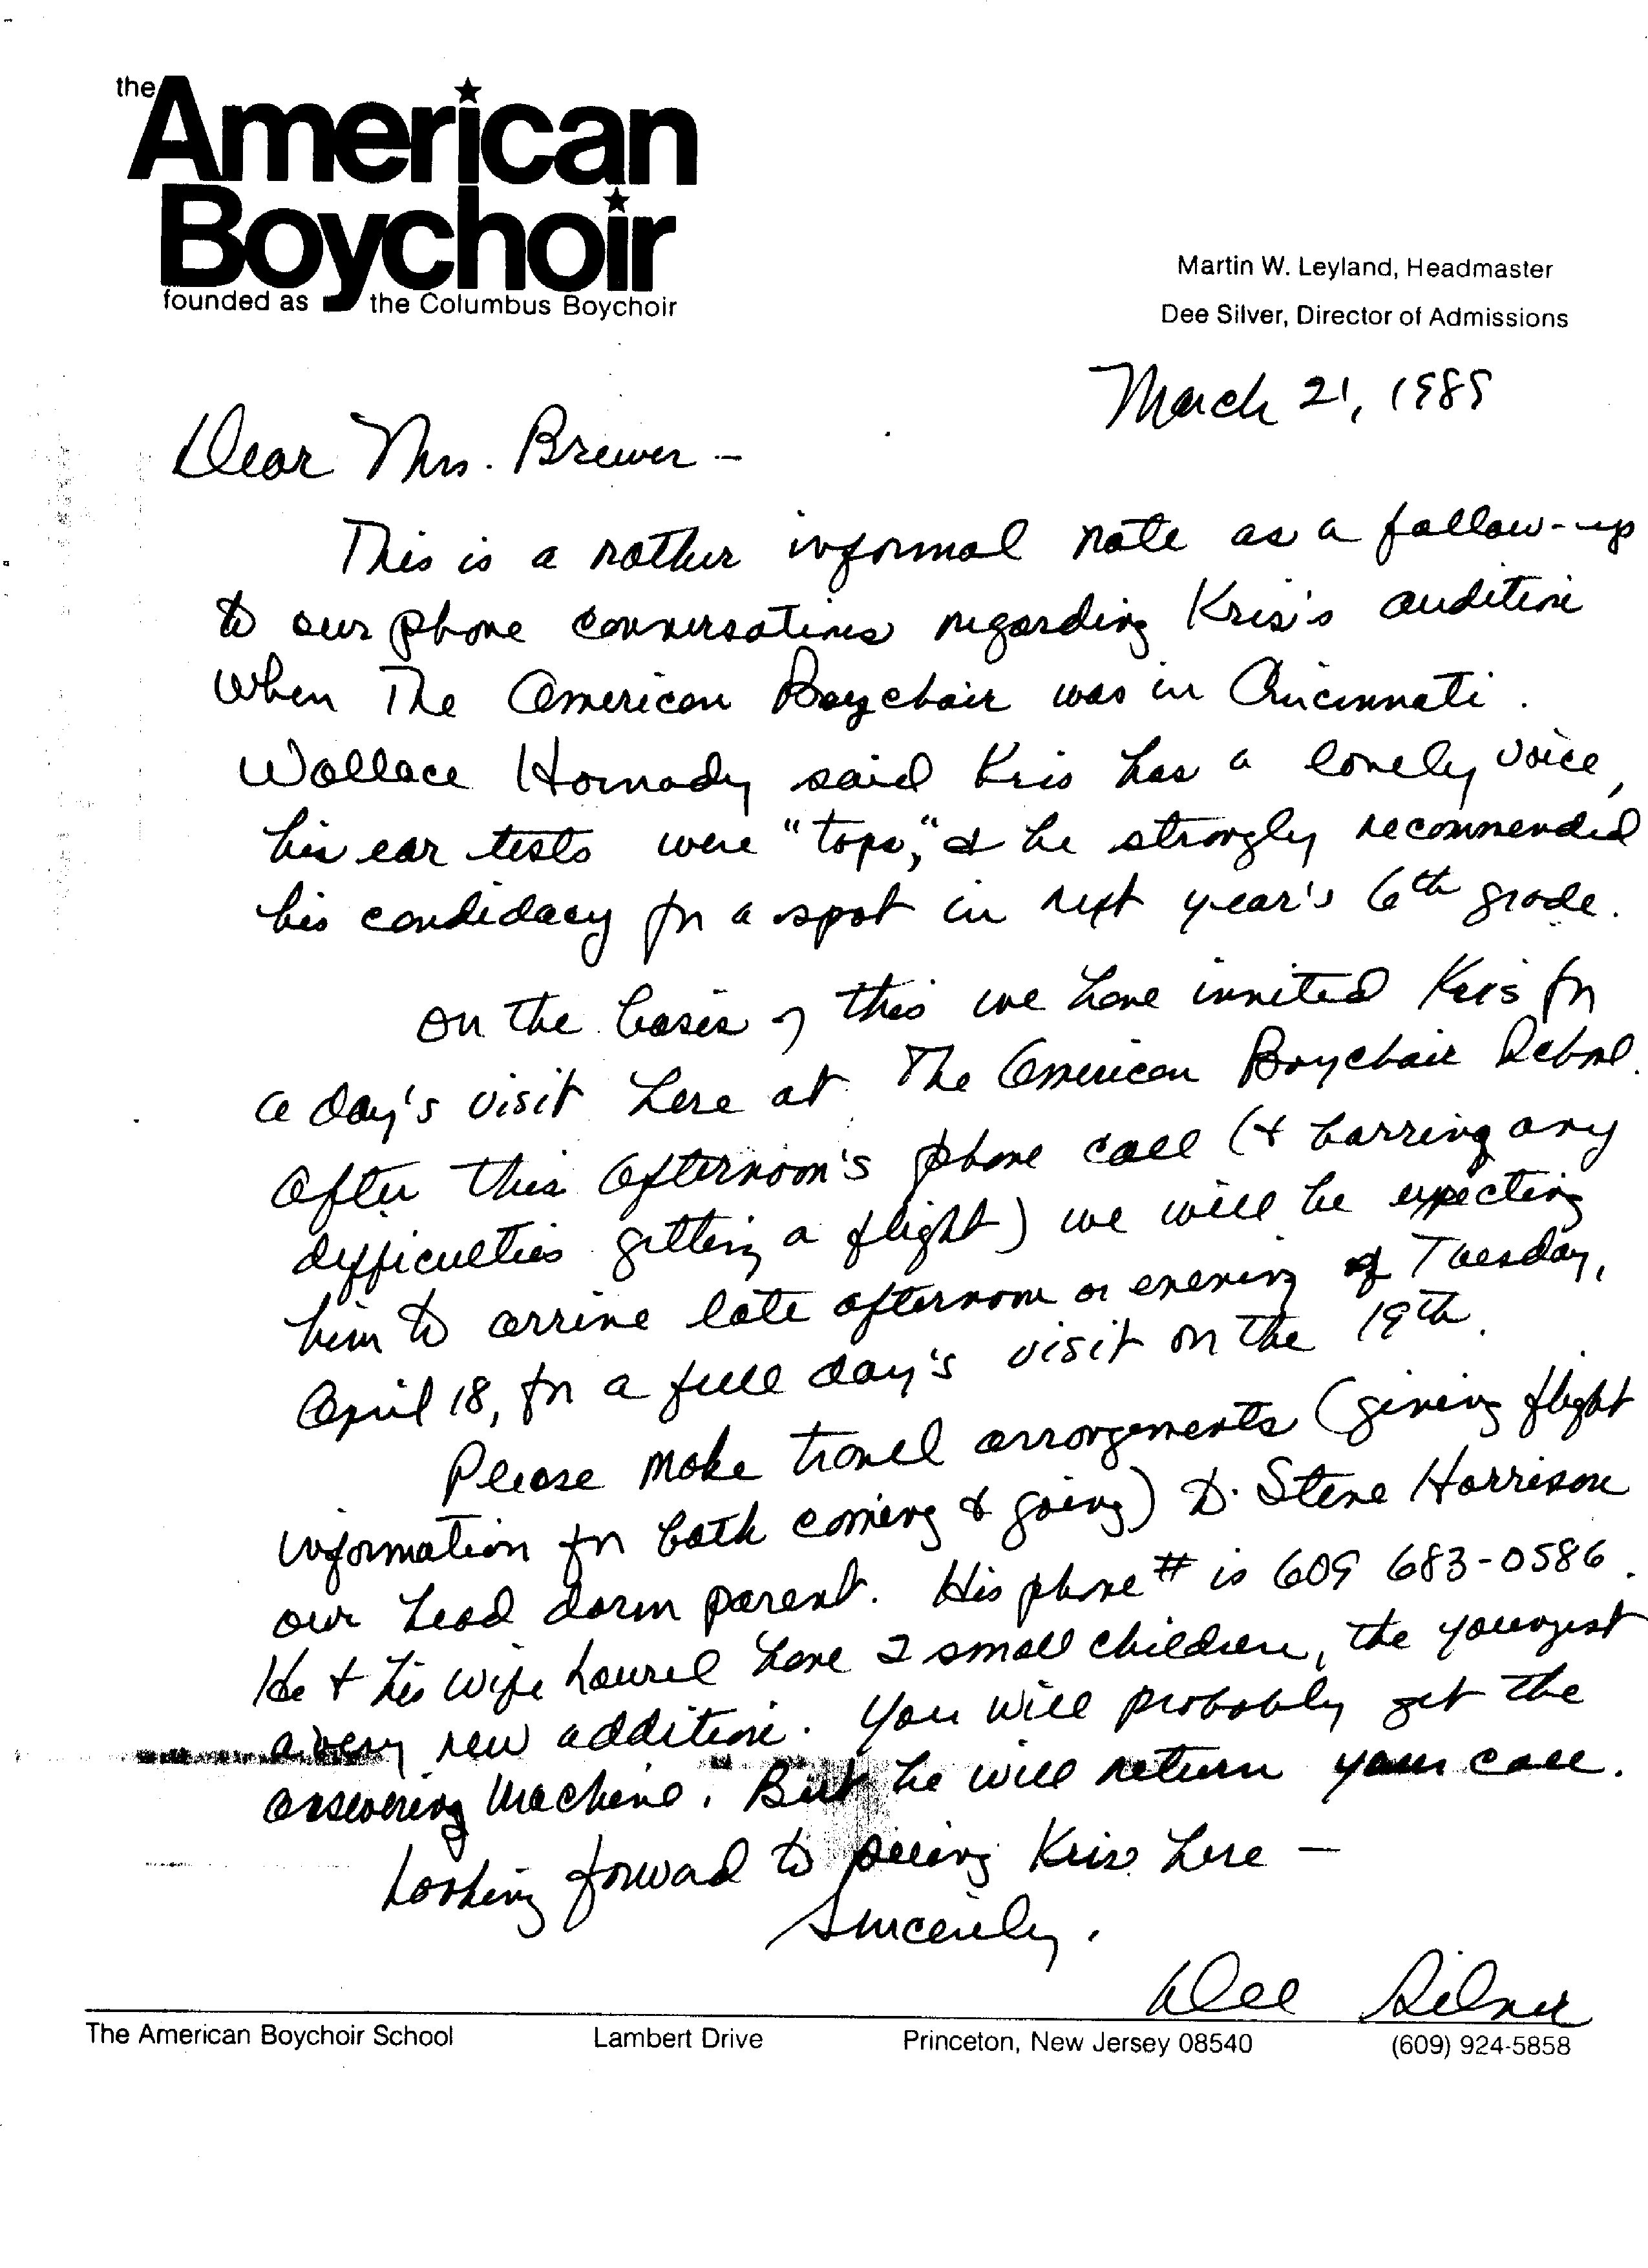 the American
Boychoir
founded as the Columbus Boychoir
Martin W. Leyland, Headmaster
Dee Silver, Director of Admissions
March 21, 1989
Dear Mrs. Brewer -
This is a rather informal note as a follow-up
to our phone conversations regarding Kris's audition
when The American Boychoir was in Cincinnati.
Wallace Hornady said Kris has a lovely voice,
his ear tests were "tops," & he strongly recommended
his candidacy for a spot in next year's 6th grade.
On the basis of this we have invited Kris for
a day's visit here at The American Boychoir School.
After this afternoon's phone call (& barring any
difficulties getting a flight) we will be expecting
him to arrive late afternoon or evening of Tuesday,
April 18, for a full day's visit on the 19th.
Please make travel arrangements (giving flight
information for both coming & going) to Steve Harrison
our head dorm parent. His phone # is 609 683-0586.
He & his wife Laurel have 2 small children, the youngest
a very new addition. You will probably get the
answering machine. But he will return your call.
Looking forward to seeing Kris here -
Sincerely,
Dee Silver
The American Boychoir School Lambert Drive Princeton, New Jersey 08540 (609) 924-5858